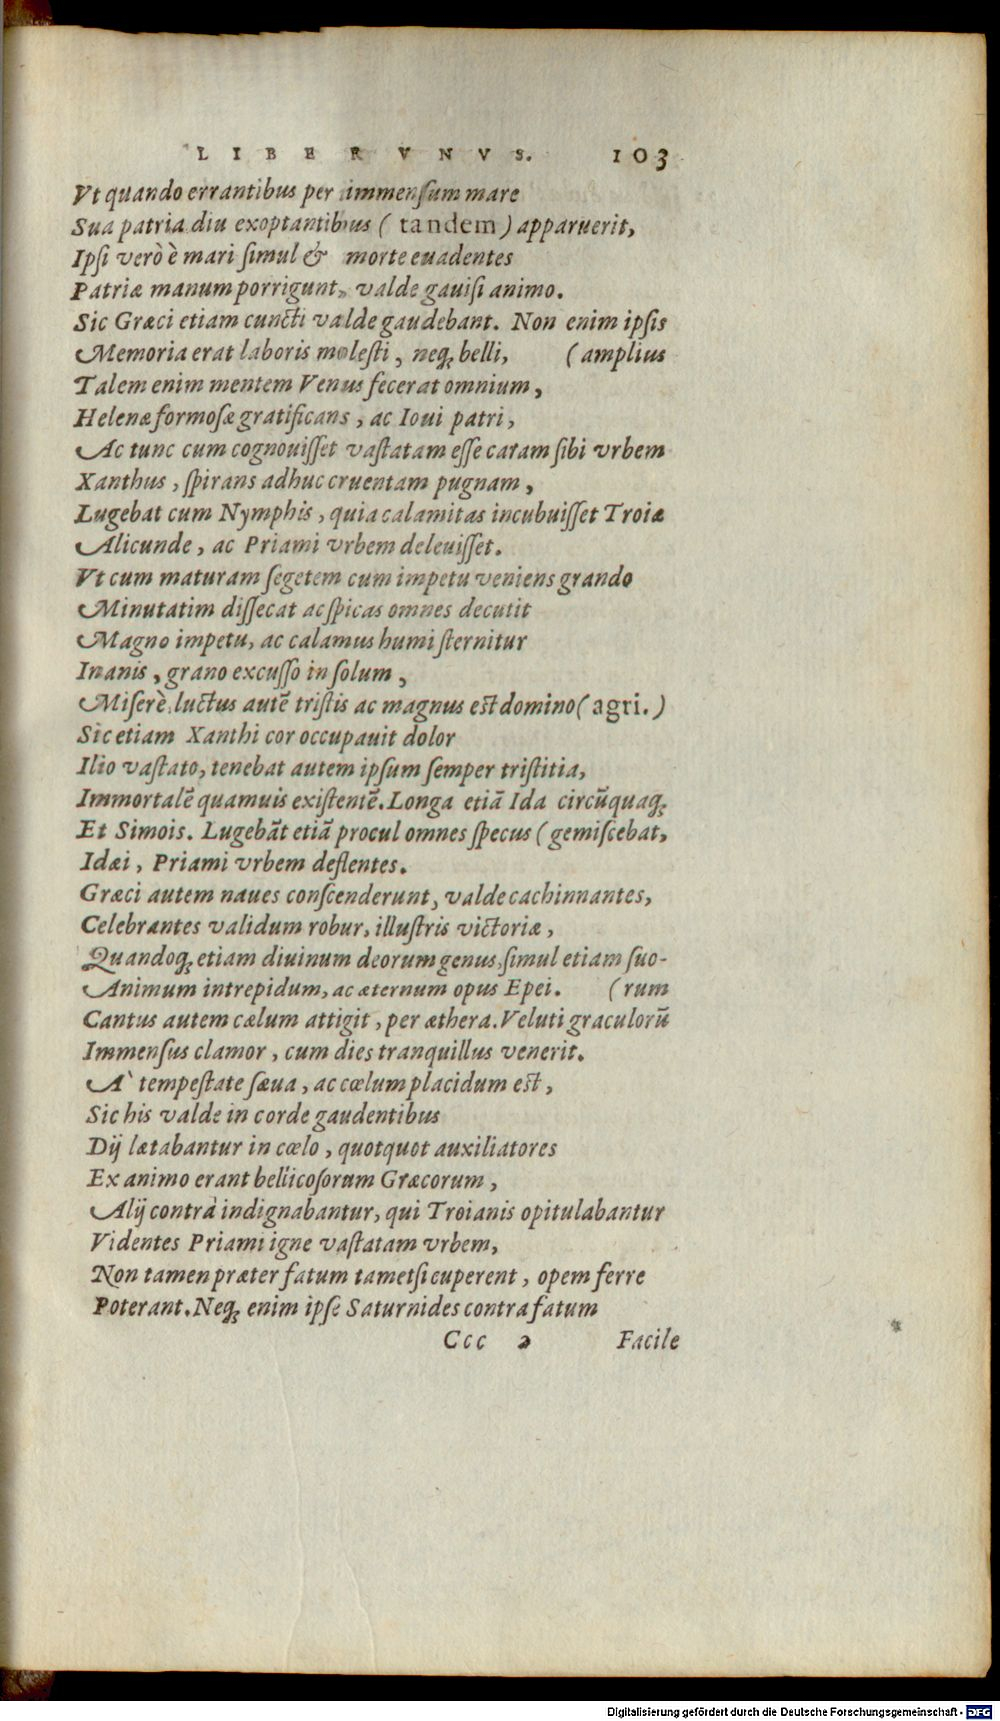 LIBER VNVS. 103
Vt quando errantibus per immensum mare
Sua patria diu exoptantibus ( tandem ) apparuerit,
Ipsi verò è mari simul & morte euadentes
Patriæ manum porrigunt, valde gauisi animo.
Sic Græci etiam cuncti valde gaudebant. Non enim ipsis
Memoria erat laboris molesti, neq; belli, ( amplius
Talem enim mentem Venus fecerat omnium,
Helenæ formosæ gratificans, ac Ioui patri,
Ac tunc cum cognouisset vastatam esse caram sibi vrbem
Xanthus, spirans adhuc cruentam pugnam,
Lugebat cum Nymphis, quia calamitas incubuisset Troiæ
Alicunde, ac Priami vrbem deleuisset.
Vt cum maturam segetem cum impetu veniens grando
Minutatim dissecat ac spicas omnes decutit
Magno impetu, ac calamus humi sternitur
Inanis, grano excusso in solum,
Miserè, luctus autē tristis ac magnus est domino ( agri. )
Sic etiam Xanthi cor occupauit dolor
Ilio vastato, tenebat autem ipsum semper tristitia,
Immortalē quamuis existentē. Longa etiā Ida circūquaq;
Et Simois. Lugebāt etiā procul omnes specus ( gemiscebat,
Idæi, Priami vrbem deflentes.
Græci autem naues conscenderunt, valde cachinnantes,
Celebrantes validum robur, illustris victoriæ,
Quandoq; etiam diuinum deorum genus, simul etiam suo-
Animum intrepidum, ac æternum opus Epei. ( rum
Cantus autem cælum attigit, per æthera. Veluti graculorū
Immensus clamor, cum dies tranquillus venerit.
A` tempestate sæua, ac cœlum placidum est,
Sic his valde in corde gaudentibus
Dij lætabantur in cœlo, quotquot auxiliatores
Ex animo erant bellicosorum Græcorum,
Alij contrà indignabantur, qui Troianis opitulabantur
Videntes Priami igne vastatam vrbem,
Non tamen præter fatum tametsi cuperent, opem ferre
Poterant. Neq; enim ipse Saturnides contra fatum
Ccc 2 Facile
Digitalisierung gefördert durch die Deutsche Forschungsgemeinschaft - DFG